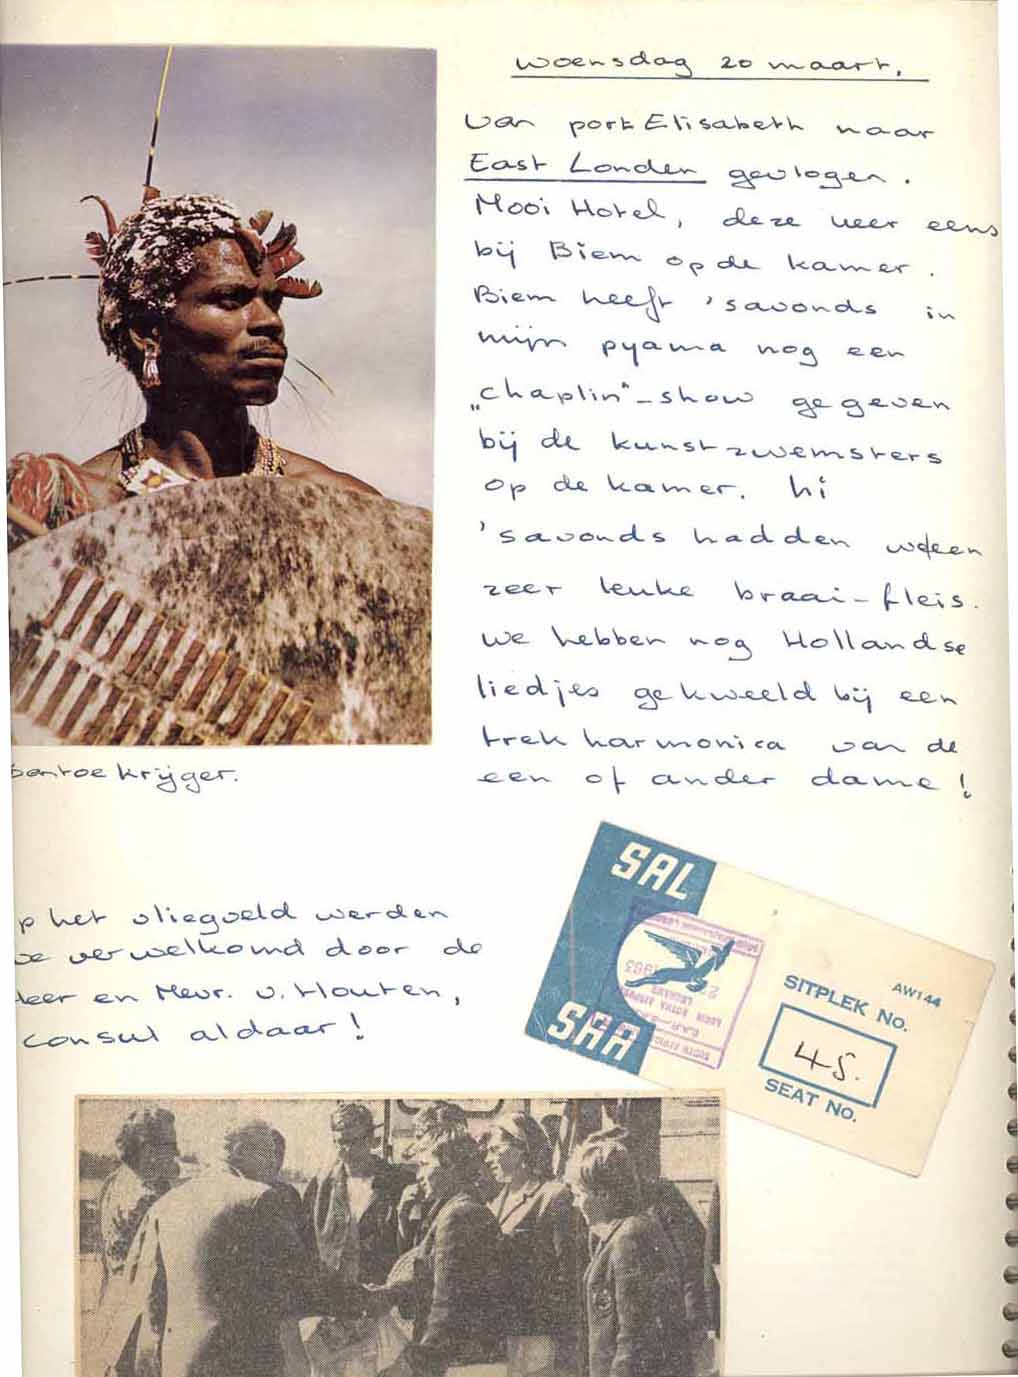 woensdag 20 maart.
van port Elisabeth naar
East Londen gevlogen.
Mooi Hotel, deze keer eens
bij Biem op de kamer.
Biem heeft 'savonds in
mijn pyama nog een
„chaplin"-show gegeven
bij de kunstzwemsters
op de kamer. hi
'savonds hadden we een
zeer leuke braai-fleis.
we hebben nog Hollandse
liedjes gekweeld bij een
trekharmonica van de
een of ander dame!
bantoe krijger.
p het vliegveld werden
we verwelkomd door de
Heer en Mevr. v. Houten,
consul aldaar!
SAL
SAA
AW144
SITPLEK No.
45.
SEAT No.